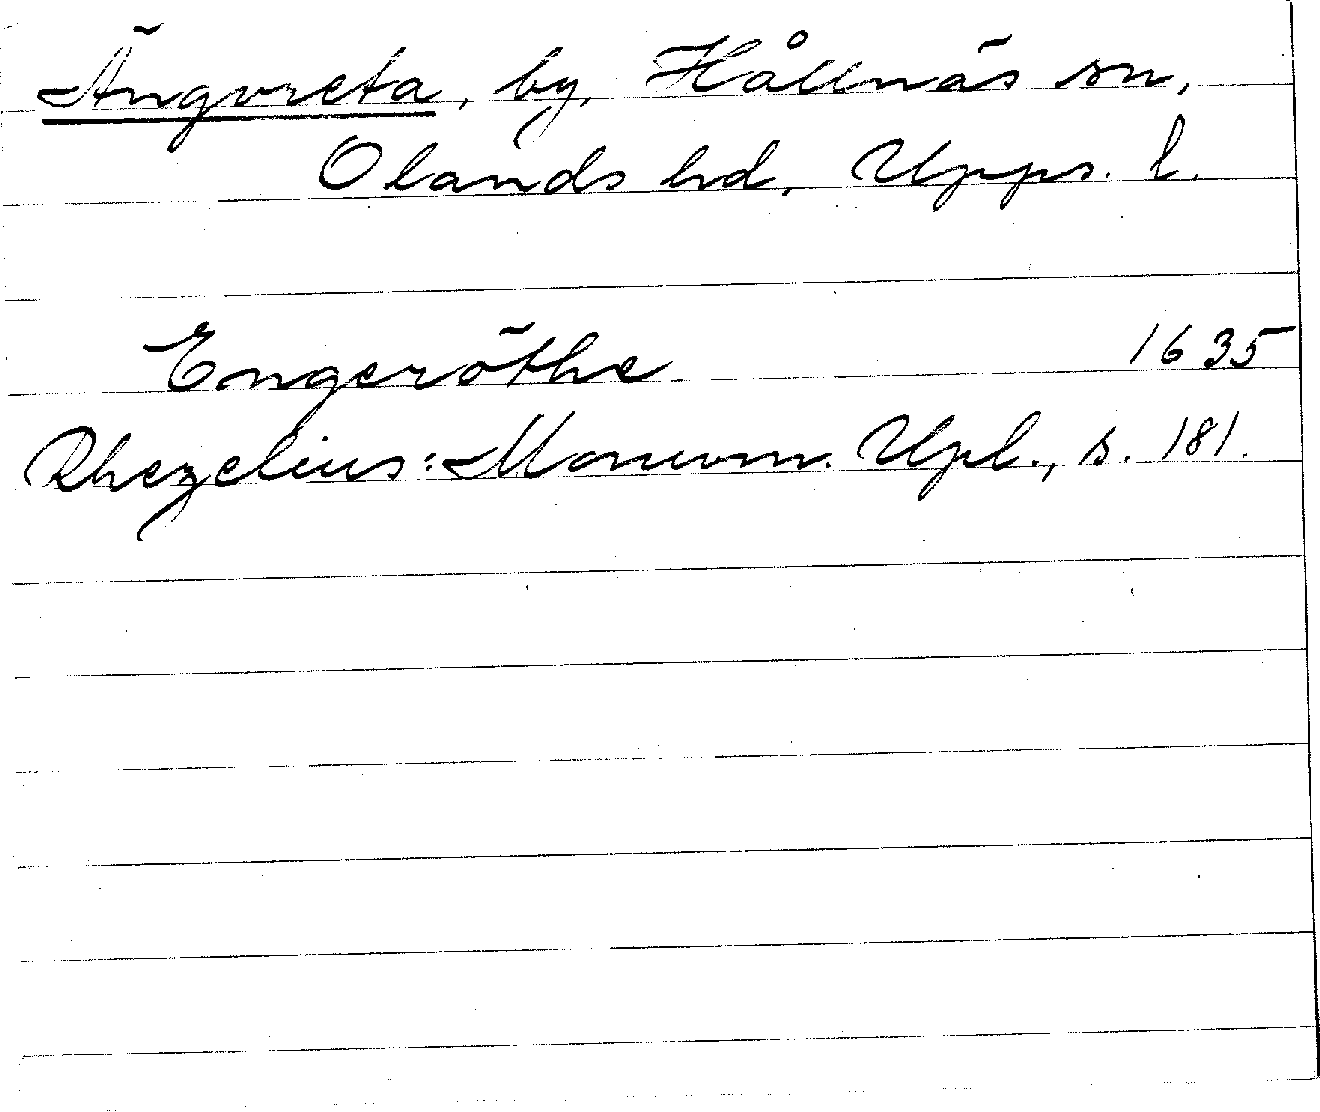 Ängvreta, by, Hållnäs sn,
Olands hd, Upps. l.
Engeröthe 1635
Rhezelius: Monum. Upl., s. 181.